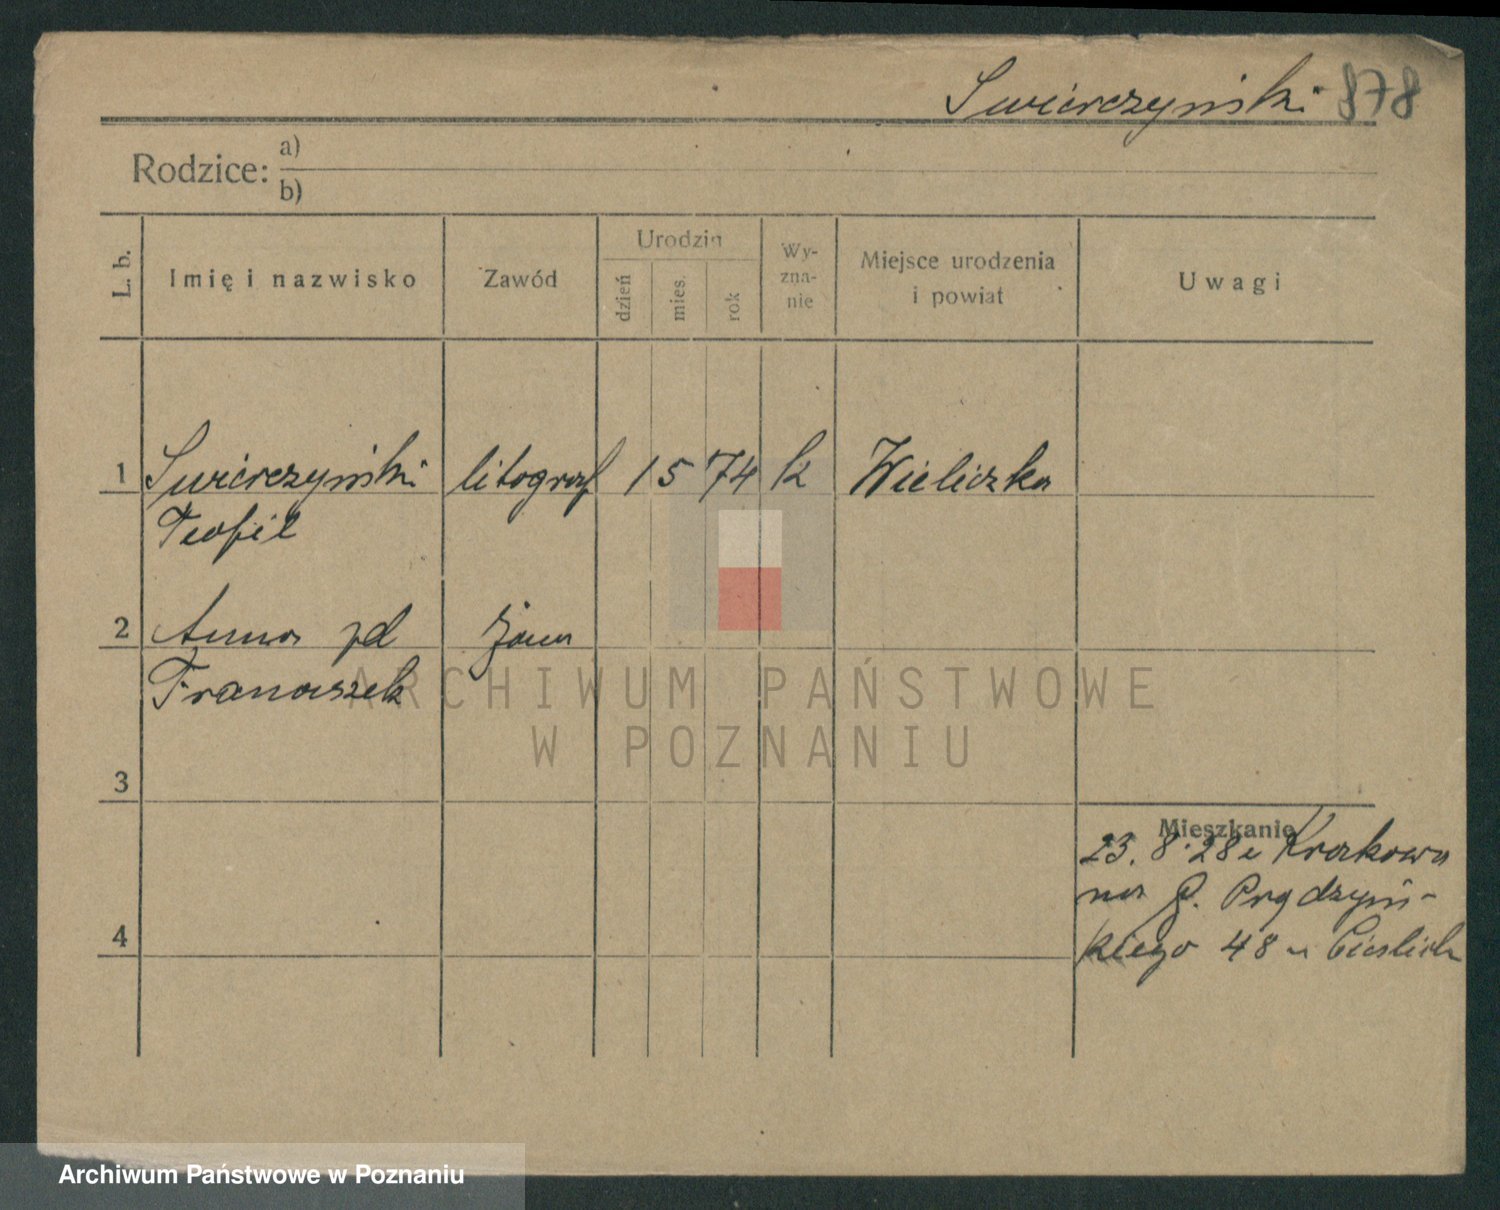 Swierczyński 878
Rodzice: a)
b)
L. b. Imię i nazwisko Zawód Urodzin dzień mies. rok Wy-zna-nie Miejsce urodzenia i powiat Uwagi
1 Swierczyński litograf 1 5 74 k Wieliczka
Teofil
2 Anna zd żona
Franaszek
3
Mieszkanie
23. 8. 28 z Krakowa
na G. Prądzyń-
skiego 48 u
4
ARCHIWUM PAŃSTWOWE
W POZNANIU
Archiwum Państwowe w Poznaniu